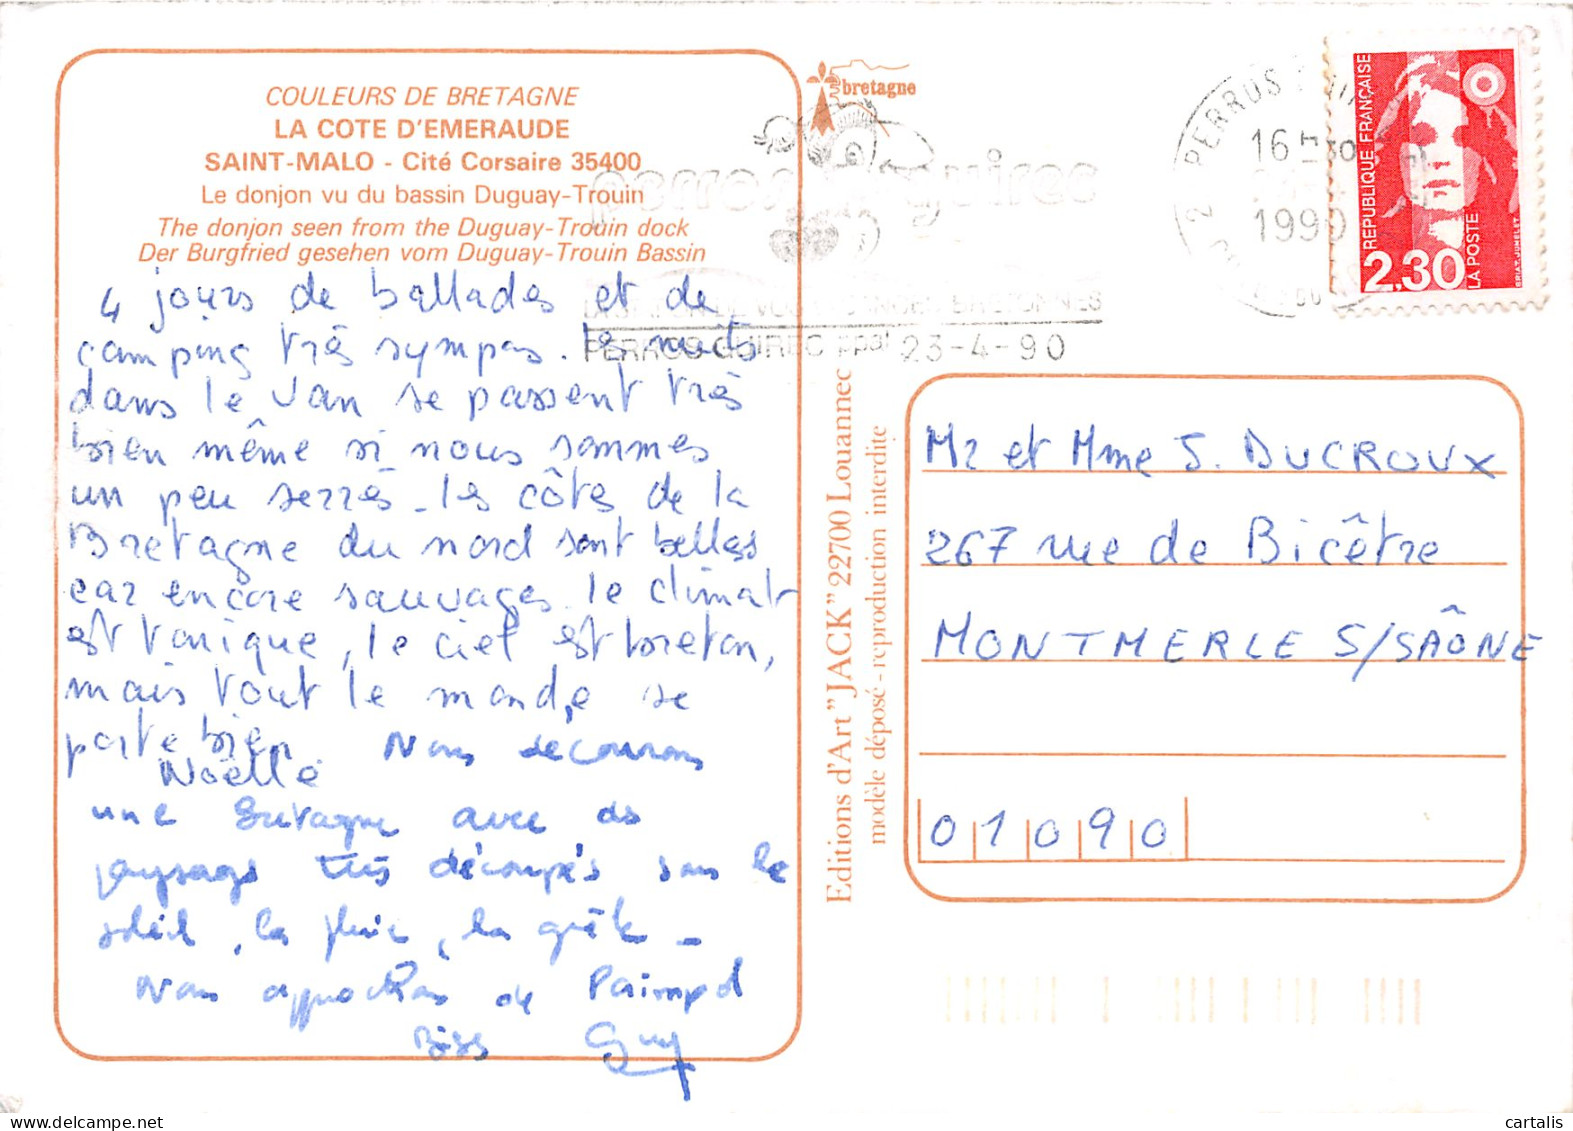 COULEURS DE BRETAGNE
LA COTE D'EMERAUDE
SAINT-MALO - Cité Corsaire 35400
Le donjon vu du bassin Duguay-Trouin
The donjon seen from the Duguay-Trouin dock
Der Burgfried gesehen vom Duguay-Trouin Bassin
4 jours de ballades et de
camping très sympas. Les nuits
dans le van se passent très
bien même si nous sommes
un peu serrés. Les côtes de la
Bretagne du nord sont belles
car encore sauvages. Le climat
est tonique, le ciel est breton,
mais tout le monde se
porte bien
Noëlle
Nous découvrons
une Bretagne avec des
paysages très découpés sous le
soleil, la pluie, la grêle -
Nous approchons de Paimpol
Bises Guy
bretagne
perros guirec
PERROS GUIREC ppal 23-4-90
PERROS GUIREC
16H30
1990
22
REPUBLIQUE FRANÇAISE
2,30
LA POSTE
BRIAT-JUMELET
Editions d'Art "JACK" 22700 Louannec
modèle déposé - reproduction interdite
Mr et Mme J. DUCROUX
267 rue de Bicêtre
MONTMERLE S/SAÔNE
01090
cartalis